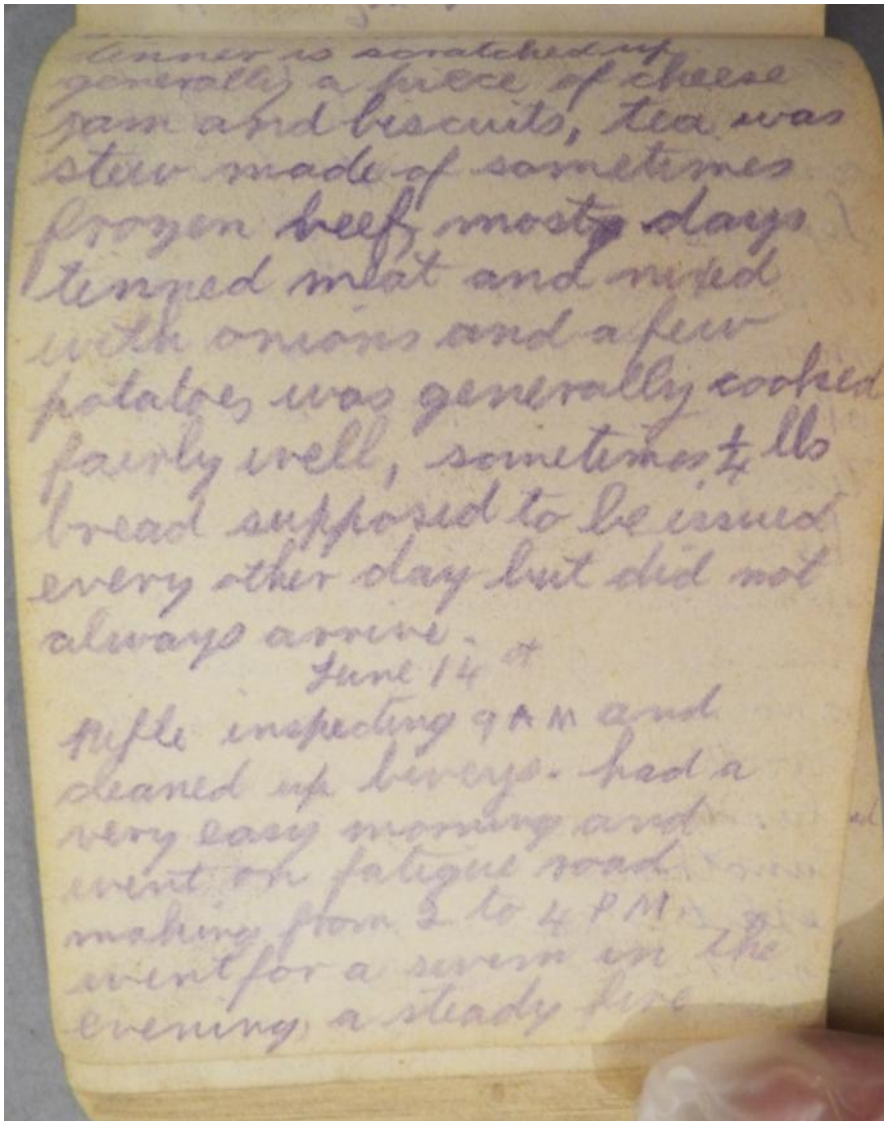 dinner is scratched up
generally a piece of cheese
jam and biscuits, tea was
stew made of sometimes
frozen beef, mostp days
tinned meat and mixed
with onions and a few
potatoes was generally cooked
fairly well, sometimes 1/4 lbs
bread supposed to be issued
every other day but did not
always arrive.
June 14
Rifle inspecting 9 AM and
cleaned up biveys. had a
very easy morning and
went on fatigue road
making from 2 to 4 PM.
went for a swim in the
evening, a steady fire